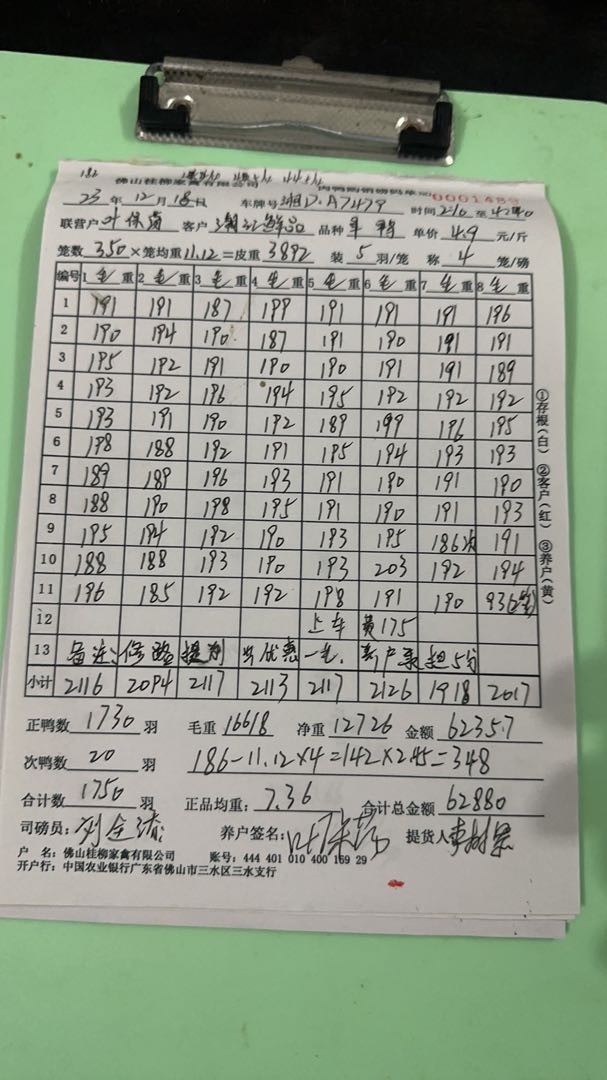 佛山桂柳家禽有限公司
00014
23 年 12 月 18 日 车牌号 湘D·A7479 时间 至
联营户 叶保 客户 鲜品 品种 单价 4.9 元/斤
笼数 350 × 笼均重 11.12 = 皮重 3892 装 5 羽/笼 称 4 笼/磅
编号 1 毛 重 2 毛 重 3 毛 重 4 毛 重 5 毛 重 6 毛 重 7 毛 重 8 毛 重
1 191 191 187 199 191 191 191 196
2 190 194 190 187 191 190 191 191
3 195 192 191 190 190 191 191 189
4 193 192 196 194 195 192 192 192
5 193 191 190 192 189 199 196 195
6 198 188 192 191 195 194 193 193
7 189 189 196 193 191 190 191 190
8 188 190 198 195 191 190 191 193
9 195 194 192 190 193 195 186次 191
10 188 188 193 190 193 203 192 194
11 196 185 192 192 198 191 190 93(2笼)
12 上车 费175
13 备注: 修路 优惠一毛, 客户承担5分
小计 2116 2094 2117 2113 2117 2126 1918 2017
正鸭数 1730 羽 毛重 16618 净重 12726 金额 62357
次鸭数 20 羽 186-11.12×4=142×2.45=348
合计数 1750 羽 正品均重: 7.36 合计总金额 62880
司磅员: 养户签名: 提货人
户 名: 佛山桂柳家禽有限公司 账号: 444 401 010 400 169 29
开户行: 中国农业银行广东省佛山市三水区三水支行
①存根(白) ②客户(红) ③养户(黄)